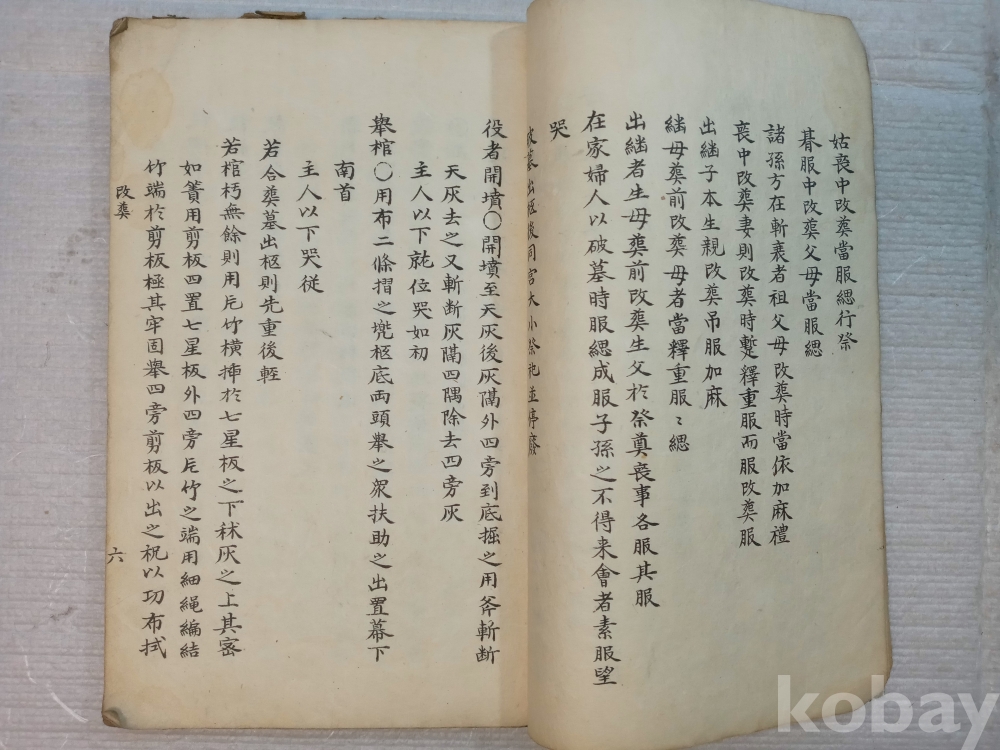 姑喪中改葬當服緦行祭
朞服中改葬父母當服緦
諸孫方在斬衰者祖父母改葬時當依加麻禮
喪中改葬妻則改葬時蹔釋重服而服改葬服
出継子本生親改葬吊服加麻
継母葬前改葬母者當釋重服〻緦
出継者生母葬前改葬生父於祭奠喪事各服其服
在家婦人以破墓時服緦成服子孫之不得来會者素服望
哭
破墓出柩後同宮大小祭祀並停廢
役者開墳〇開墳至天灰後灰隔外四旁到底掘之用斧斬斷
天灰去之又斬斷灰隔四隅除去四旁灰
主人以下就位哭如初
舉棺〇用布二條摺之兠柩底両頭舉之衆扶助之出置幕下
南首
主人以下哭從
若合葬墓出柩則先重後軽
若棺朽無餘則用片竹橫揷於七星板之下秫灰之上其密
如簀用剪板四置七星板外四旁片竹之端用細繩編結
竹端於剪板極其牢固舉四旁剪板以出之祝以功布拭
改葬
六
kobay